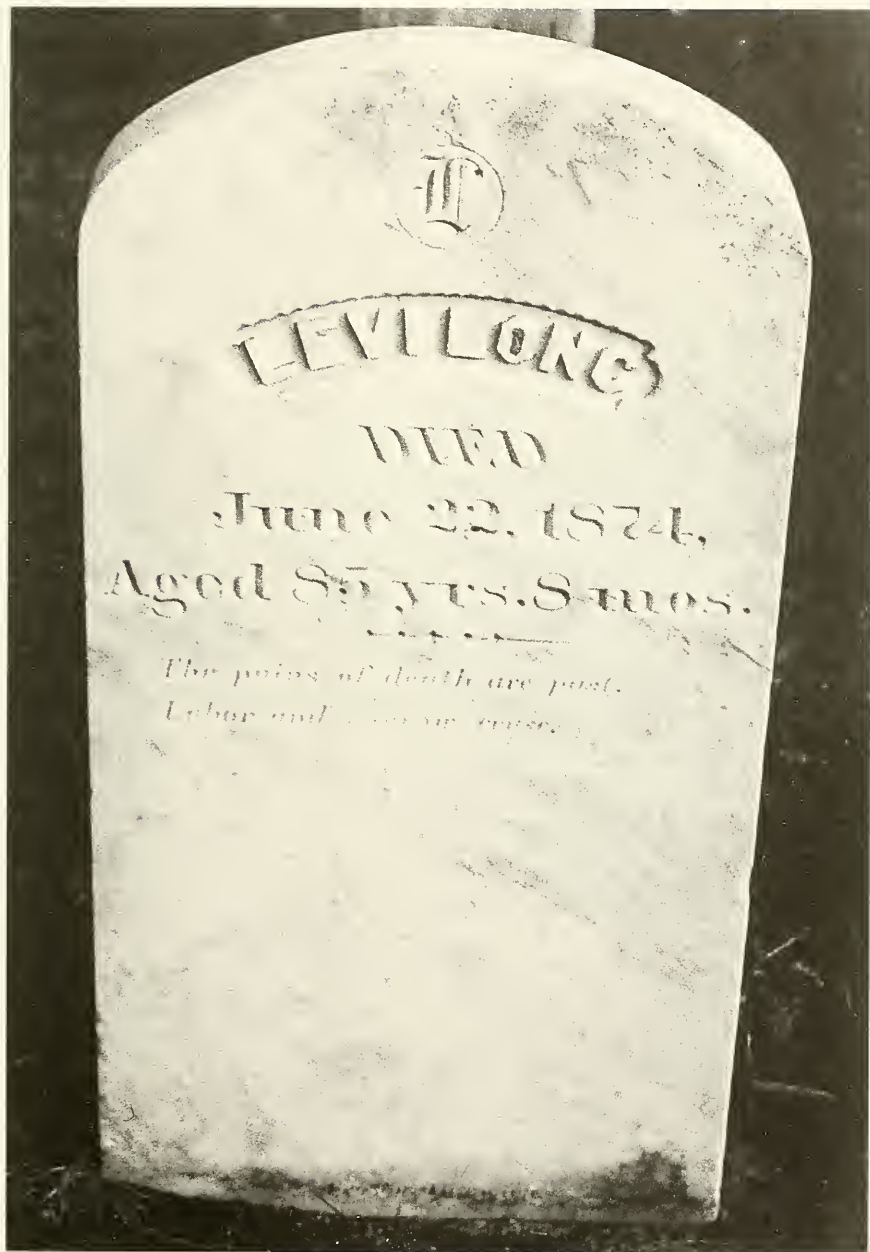 L
LEVI LONG
DIED
June 22. 1874,
Aged 85 yrs. 8 mos.
The pains of death are past.
Labor and cease.